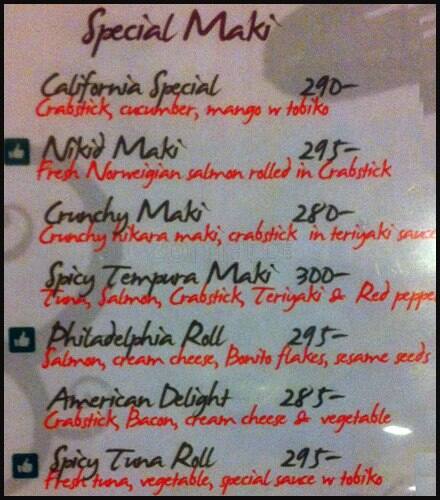 Special Maki
California Special 290-
Crabstick, cucumber, mango w tobiko
Nikid Maki 295-
Fresh Norweigian salmon rolled in Crabstick
Crunchy Maki 280-
Crunchy nikara maki, crabstick in teriyaki sauce
Spicy Tempura Maki 300-
Tuna, Salmon, Crabstick, Teriyaki & Red peppe
Philadelphia Roll 295-
Salmon, cream cheese, Bonito flakes, sesame seeds
American Delight 285-
Crabstick, Bacon, cream cheese & vegetable
Spicy Tuna Roll 295-
Fresh tuna, vegetable, special sauce w tobiko